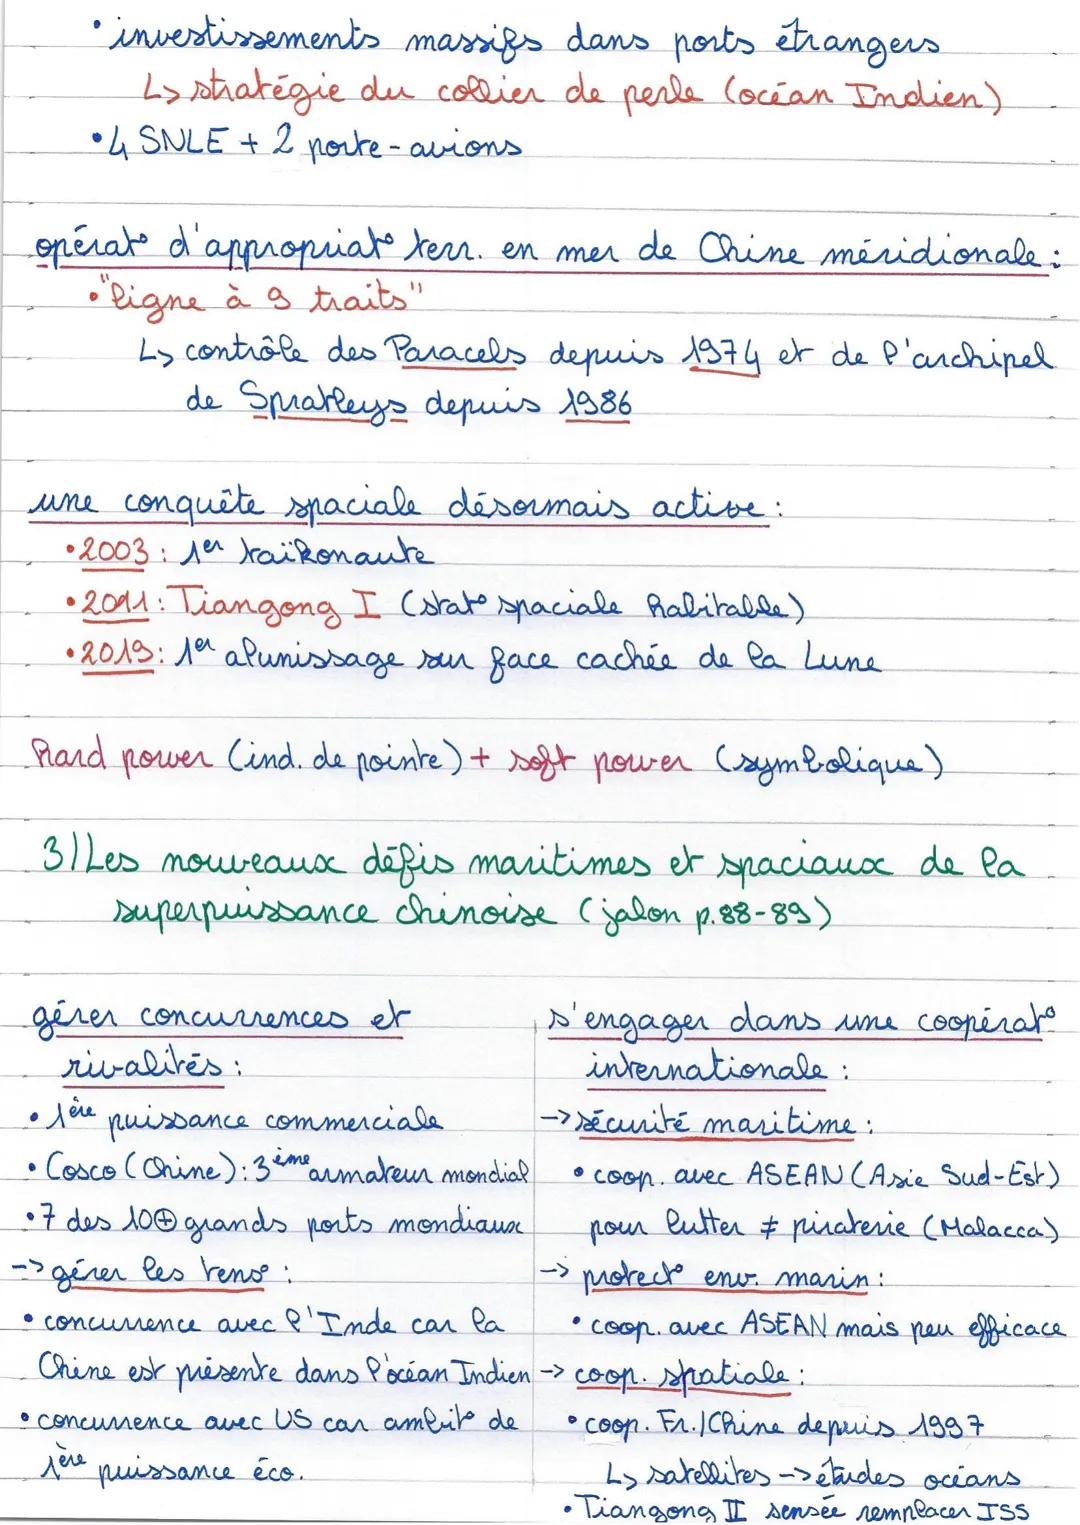 • investissements massifs dans ports étrangers
↳ stratégie du collier de perle (océan Indien)
• 4 SNLE + 2 porte-avions
opérat° d'appropriat° terr. en mer de Chine méridionale :
• "ligne à 9 traits"
↳ contrôle des Paracels depuis 1974 et de l'archipel
de Spratleys depuis 1986
une conquête spaciale désormais active :
• 2003 : 1er taïkonaute
• 2011 : Tiangong I (stat° spaciale habitable)
• 2019 : 1er alunissage sur face cachée de la Lune
hard power (ind. de pointe) + soft power (symbolique)
3/ Les nouveaux défis maritimes et spaciaux de la
superpuissance chinoise (jalon p.88-89)
gérer concurrences et
rivalités :
• 1ère puissance commerciale
• Cosco (Chine) : 3ème armateur mondial
• 7 des 10 ⊕ grands ports mondiaux
-> gérer les tens° :
• concurrence avec l'Inde car la
Chine est présente dans l'océan Indien
• concurrence avec US car ambit° de
1ère puissance éco.
s'engager dans une coopérat°
internationale :
-> sécurité maritime :
• coop. avec ASEAN (Asie Sud-Est)
pour lutter ≠ piraterie (Malacca)
-> protect° env. marin :
• coop. avec ASEAN mais peu efficace
-> coop. spatiale :
• coop. Fr./Chine depuis 1997
↳ satellites -> études océans
• Tiangong II sensée remplacer ISS